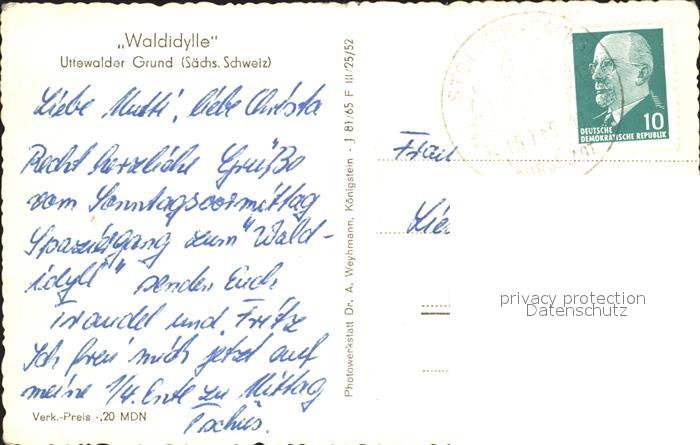 „Waldidylle"
Uttewalder Grund (Sächs. Schweiz)
Liebe Mutti, liebe Christa
Recht herzliche Grüße
vom Sonntagsvormittag
Spaziergang zum "Wald-
idyll" senden Euch
Traudel und Fritz
Ich freu' mich jetzt auf
meine 1/4 Ente zu Mittag
Tschüs.
Verk.-Preis -,20 MDN
Photowerkstatt Dr. A. Weyhmann, Königstein - J 81/65 F III/25/52
10
DEUTSCHE
DEMOKRATISCHE REPUBLIK
Frau
privacy protection
Datenschutz